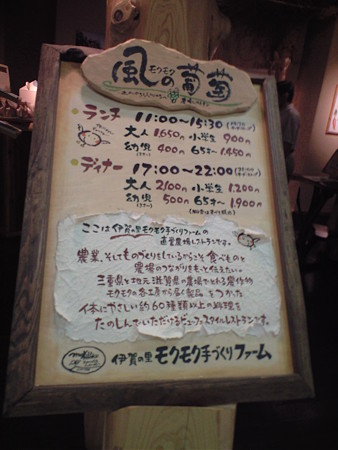 モクモク
風の葡萄
ランチ 11:00～15:30
大人 1,650円 小学生 900円
幼児 400円 65才～ 1,450円
ディナー 17:00～22:00
大人 2,100円 小学生 1,200円
幼児 500円 65才～ 1,900円
ここは伊賀の里モクモク手づくりファームの
直営農場レストランです。
農業、そしてものづくりをしているからこそ食べものと
農場のつながりをもっと伝えたい。
三重県と地元滋賀県の農場でとれる農作物
モクモクの各工房から届く製品をつかった
体にやさしい約60種類以上の料理を
たのしんでいただけるビュッフェスタイルレストランです。
伊賀の里 モクモク手づくりファーム